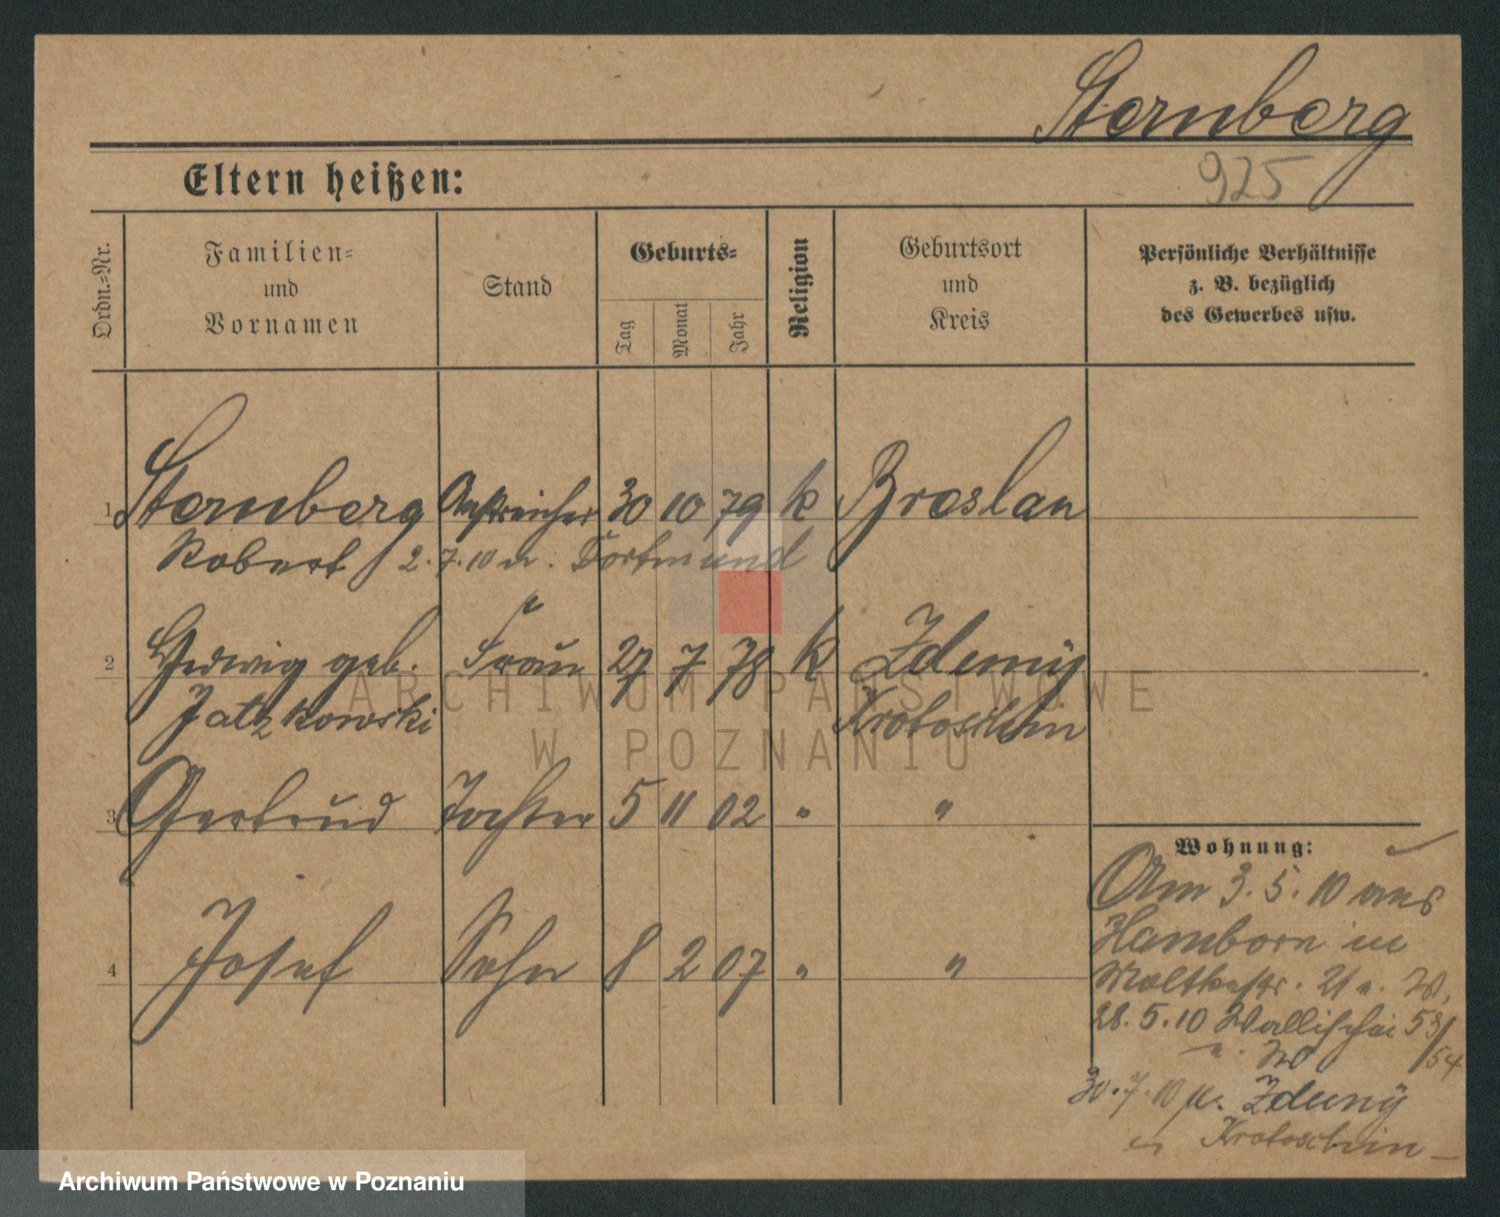 Sternberg
925
Eltern heißen:
Ordn.=Nr.
Familien=
und
Vornamen
Stand
Geburts=
Tag
Monat
Jahr
Religion
Geburtsort
und
Kreis
Persönliche Verhältnisse
z. B. bezüglich
des Gewerbes usw.
1 Sternberg Anstreicher 30 10 79 k Breslau
Robert 2.7.10 n. Dortmund
2 Hedwig geb. Frau 27 7 78 k Zduny
Jatzkowski Krotoschin
3 Gertrud Tochter 5 11 02 " "
4 Josef Sohn 8 2 07 " "
Wohnung:
Am 3.5.10 aus
Hamborn in
Moltkestr. 21 a. W.
28.5.10 Wallischei 53/54
30.7.10 n. Zduny
Krotoschin
ARCHIWUM PAŃSTWOWE
W POZNANIU
Archiwum Państwowe w Poznaniu